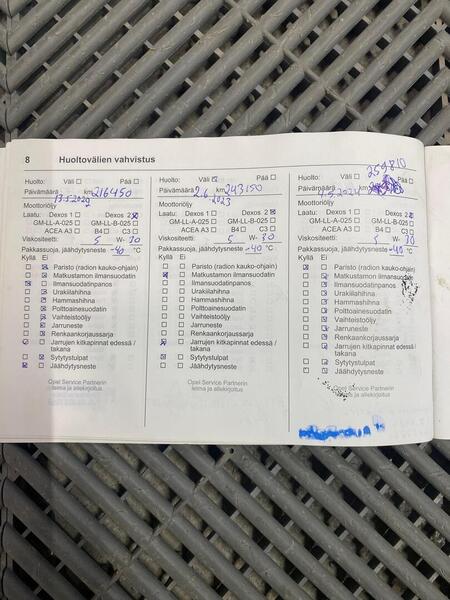 8 Huoltovälien vahvistus
Huolto: Väli Pää
Päivämäärä 13.5.2022 km 216450
Moottoriöljy
Laatu: Dexos 1 Dexos 2
GM-LL-A-025 GM-LL-B-025
ACEA A3 B4 C3
Viskositeetti 5 W- 30
Pakkassuoja, jäähdytysneste -40 °C
Kyllä Ei
Paristo (radion kauko-ohjain)
Matkustamon ilmansuodatin
Ilmansuodatinpanos
Urakiilahihna
Hammashihna
Polttoainesuodatin
Vaihteistoöljy
Jarruneste
Renkaankorjaussarja
Jarrujen kitkapinnat edessä /
takana
Sytytystulpat
Jäähdytysneste
Opel Service Partnerin
leima ja allekirjoitus
Huolto: Väli Pää
Päivämäärä 2.6.2023 km 243150
Moottoriöljy
Laatu: Dexos 1 Dexos 2
GM-LL-A-025 GM-LL-B-025
ACEA A3 B4 C3
Viskositeetti 5 W- 30
Pakkassuoja, jäähdytysneste -40 °C
Kyllä Ei
Paristo (radion kauko-ohjain)
Matkustamon ilmansuodatin
Ilmansuodatinpanos
Urakiilahihna
Hammashihna
Polttoainesuodatin
Vaihteistoöljy
Jarruneste
Renkaankorjaussarja
Jarrujen kitkapinnat edessä /
takana
Sytytystulpat
Jäähdytysneste
Opel Service Partnerin
leima ja allekirjoitus
Huolto: Väli Pää
259810
Päivämäärä 4.5.2024 km
Moottoriöljy
Laatu: Dexos 1 Dexos 2
GM-LL-A-025 GM-LL-B-025
ACEA A3 B4 C3
Viskositeetti 5 W- 30
Pakkassuoja, jäähdytysneste -40 °C
Kyllä Ei
Paristo (radion kauko-ohjain)
Matkustamon ilmansuodatin
Ilmansuodatinpanos
Urakiilahihna
Hammashihna
Polttoainesuodatin
Vaihteistoöljy
Jarruneste
Renkaankorjaussarja
Jarrujen kitkapinnat edessä /
takana
Sytytystulpat
Jäähdytysneste
Opel Service Partnerin
leima ja allekirjoitus